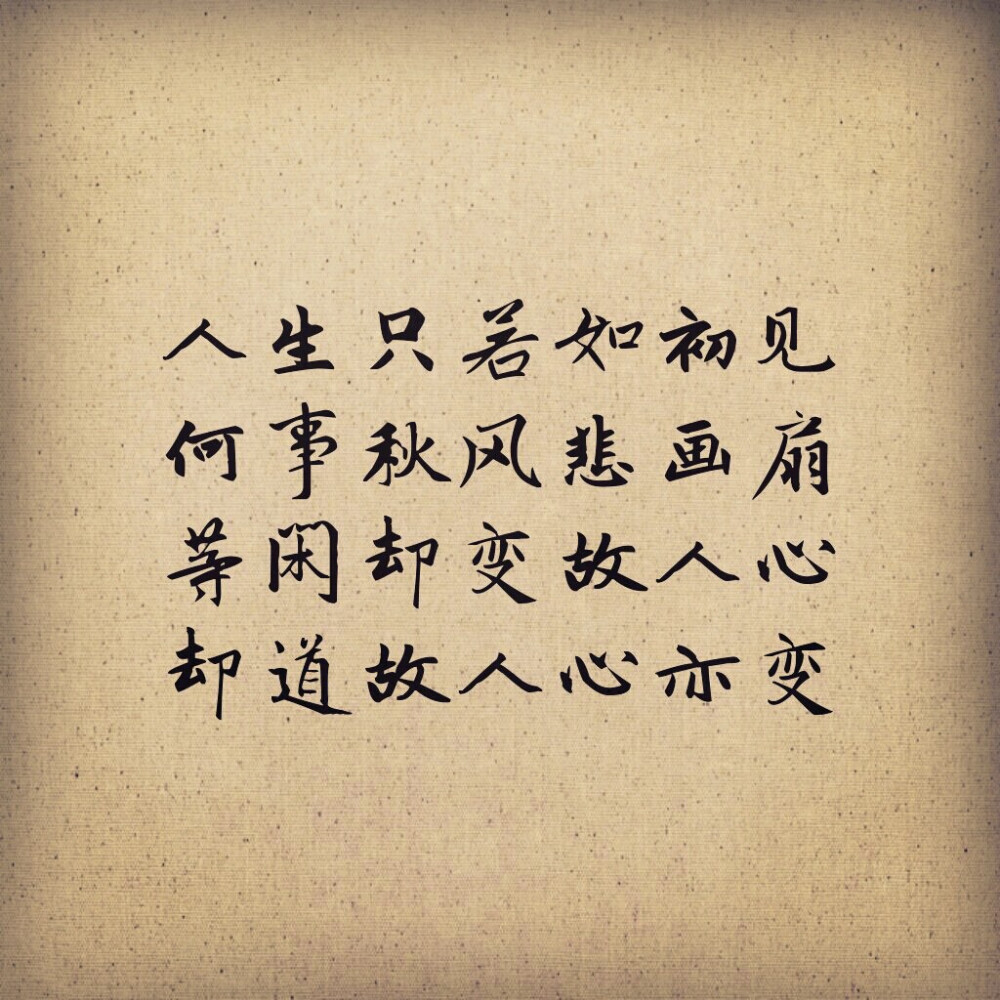 人生只若如初见
何事秋风悲画扇
等闲却变故人心
却道故人心亦变